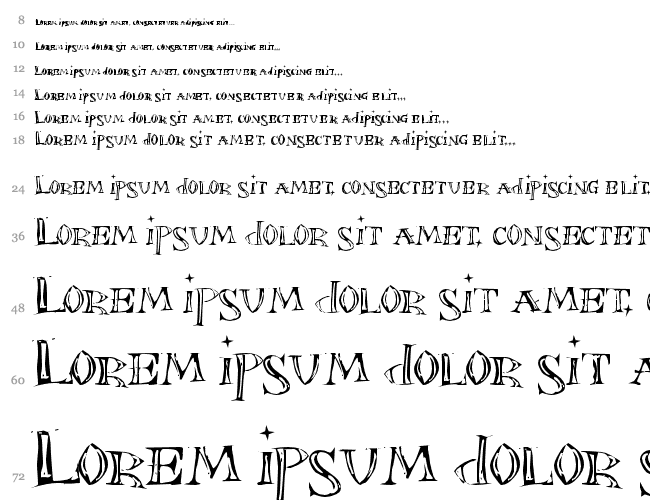 8 Lorem ipsum dolor sit amet, consectetuer adipiscing elit...
10 Lorem ipsum dolor sit amet, consectetuer adipiscing elit...
12 Lorem ipsum dolor sit amet, consectetuer adipiscing elit...
14 Lorem ipsum dolor sit amet, consectetuer adipiscing elit...
16 Lorem ipsum dolor sit amet, consectetuer adipiscing elit...
18 Lorem ipsum dolor sit amet, consectetuer adipiscing elit...
24 Lorem ipsum dolor sit amet, consectetuer adipiscing elit.
36 Lorem ipsum dolor sit amet, consectet
48 Lorem ipsum dolor sit amet,
60 Lorem ipsum dolor sit a
72 Lorem ipsum dolor s